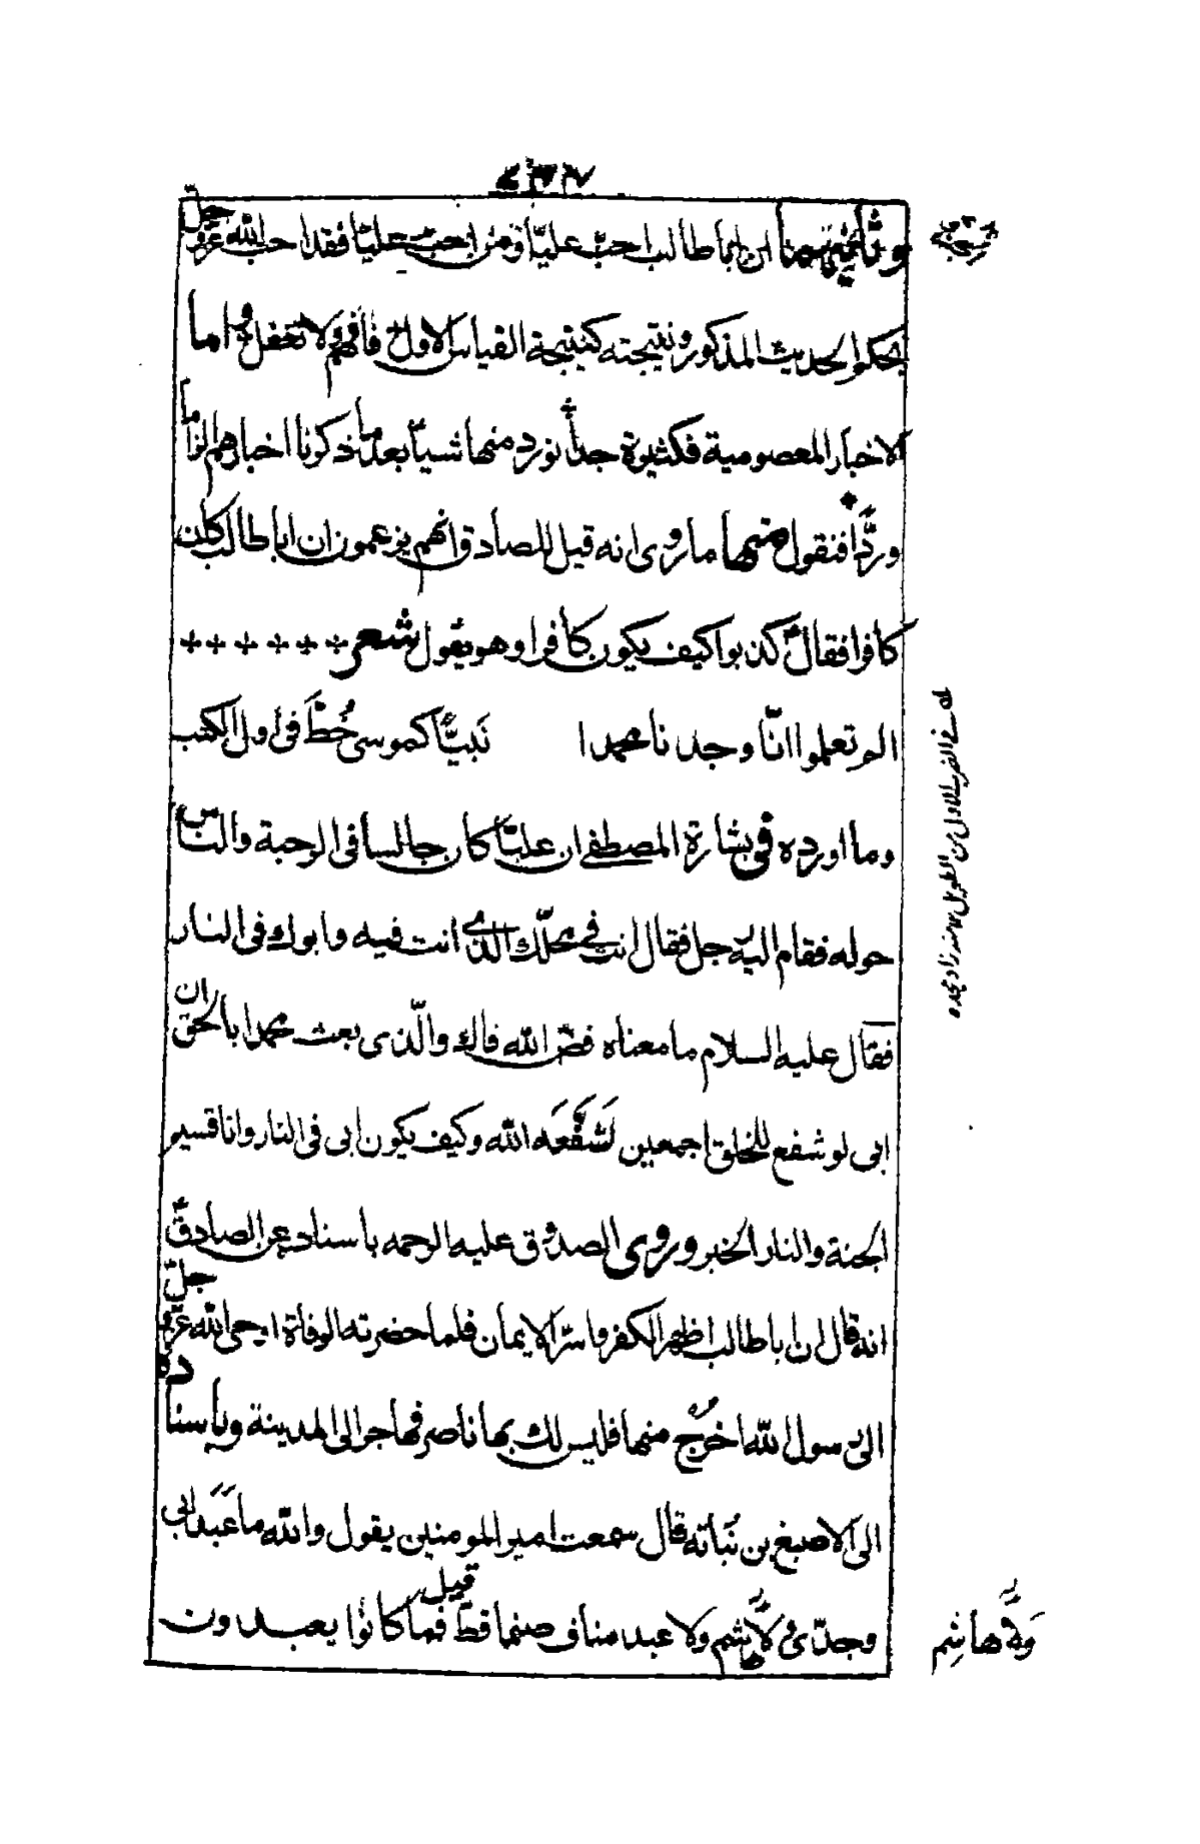 ان اباطالب احبّ عليّا ومن احبّ عليّا فقد احب الله عزّ وجلّ
بحكم الحديث المذكور ونتيجته كنتيجة القياس الاول فافهم ولا تغفل واما
الاخبار المعصومية فكثيرة جداً نورد منها شيئاً بعد ما ذكرنا اخبارهم الزاماً
وردّاً فنقول منها ما روى انه قيل للصادق انهم يزعمون ان اباطالب كان
كافرا فقال كذبوا كيف يكون كافرا وهو يقول شعر
الم تعلموا انّا وجدنا محمدا نَبيًّا كموسى خُطَّ فى اول الكتب
وما اورده فى بشارة المصطفى ان عليّا كان جالسا فى الرحبة والناس
حوله فقام اليه رجل فقال انت فى محلّك الذى انت فيه وابوك فى النار
فقال عليه السلام ما معناه فضّ الله فاك والّذى بعث محمدا بالحق ان
ابى لو شفع للخلق اجمعين لَشَفَّعَه الله وكيف يكون ابى فى النار وانا قسيم
الجنة والنار الخبر وروى الصدوق عليه الرحمه باسناده عن الصادق
انه قال ان اباطالب اظهر الكفر واسرّ الايمان فلما حضرته الوفاة اوحى الله عزّ وجلّ
الى رسول الله اخرُج منها فليس لك بها ناصر فهاجر الى المدينة وباسناده
الى الاصبغ بن نُباته قال سمعت امير المومنين يقول والله ما عَبَدَ ابى
وجدّى ولا هاشم ولا عبد مناف صنما قطّ قيل فما كانوا يعبدون
ولا هاشم